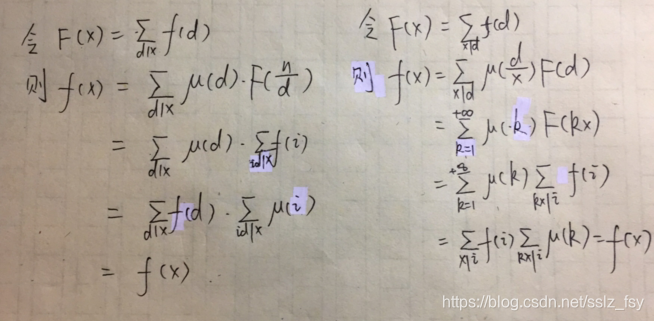 令 F(x) = ∑_{d|x} f(d)
则 f(x) = ∑_{d|x} μ(d)·F(n/d)
= ∑_{d|x} μ(d)·∑_{id|x} f(i)
= ∑_{d|x} f(d)·∑_{id|x} μ(i)
= f(x)
令 F(x) = ∑_{x|d} f(d)
则 f(x) = ∑_{x|d} μ(d/x) F(d)
= ∑_{k=1}^{+∞} μ(k) F(kx)
= ∑_{k=1}^{+∞} μ(k) ∑_{kx|i} f(i)
= ∑_{x|i} f(i) ∑_{kx|i} μ(k) = f(x)
https://blog.csdn.net/sslz_fsy